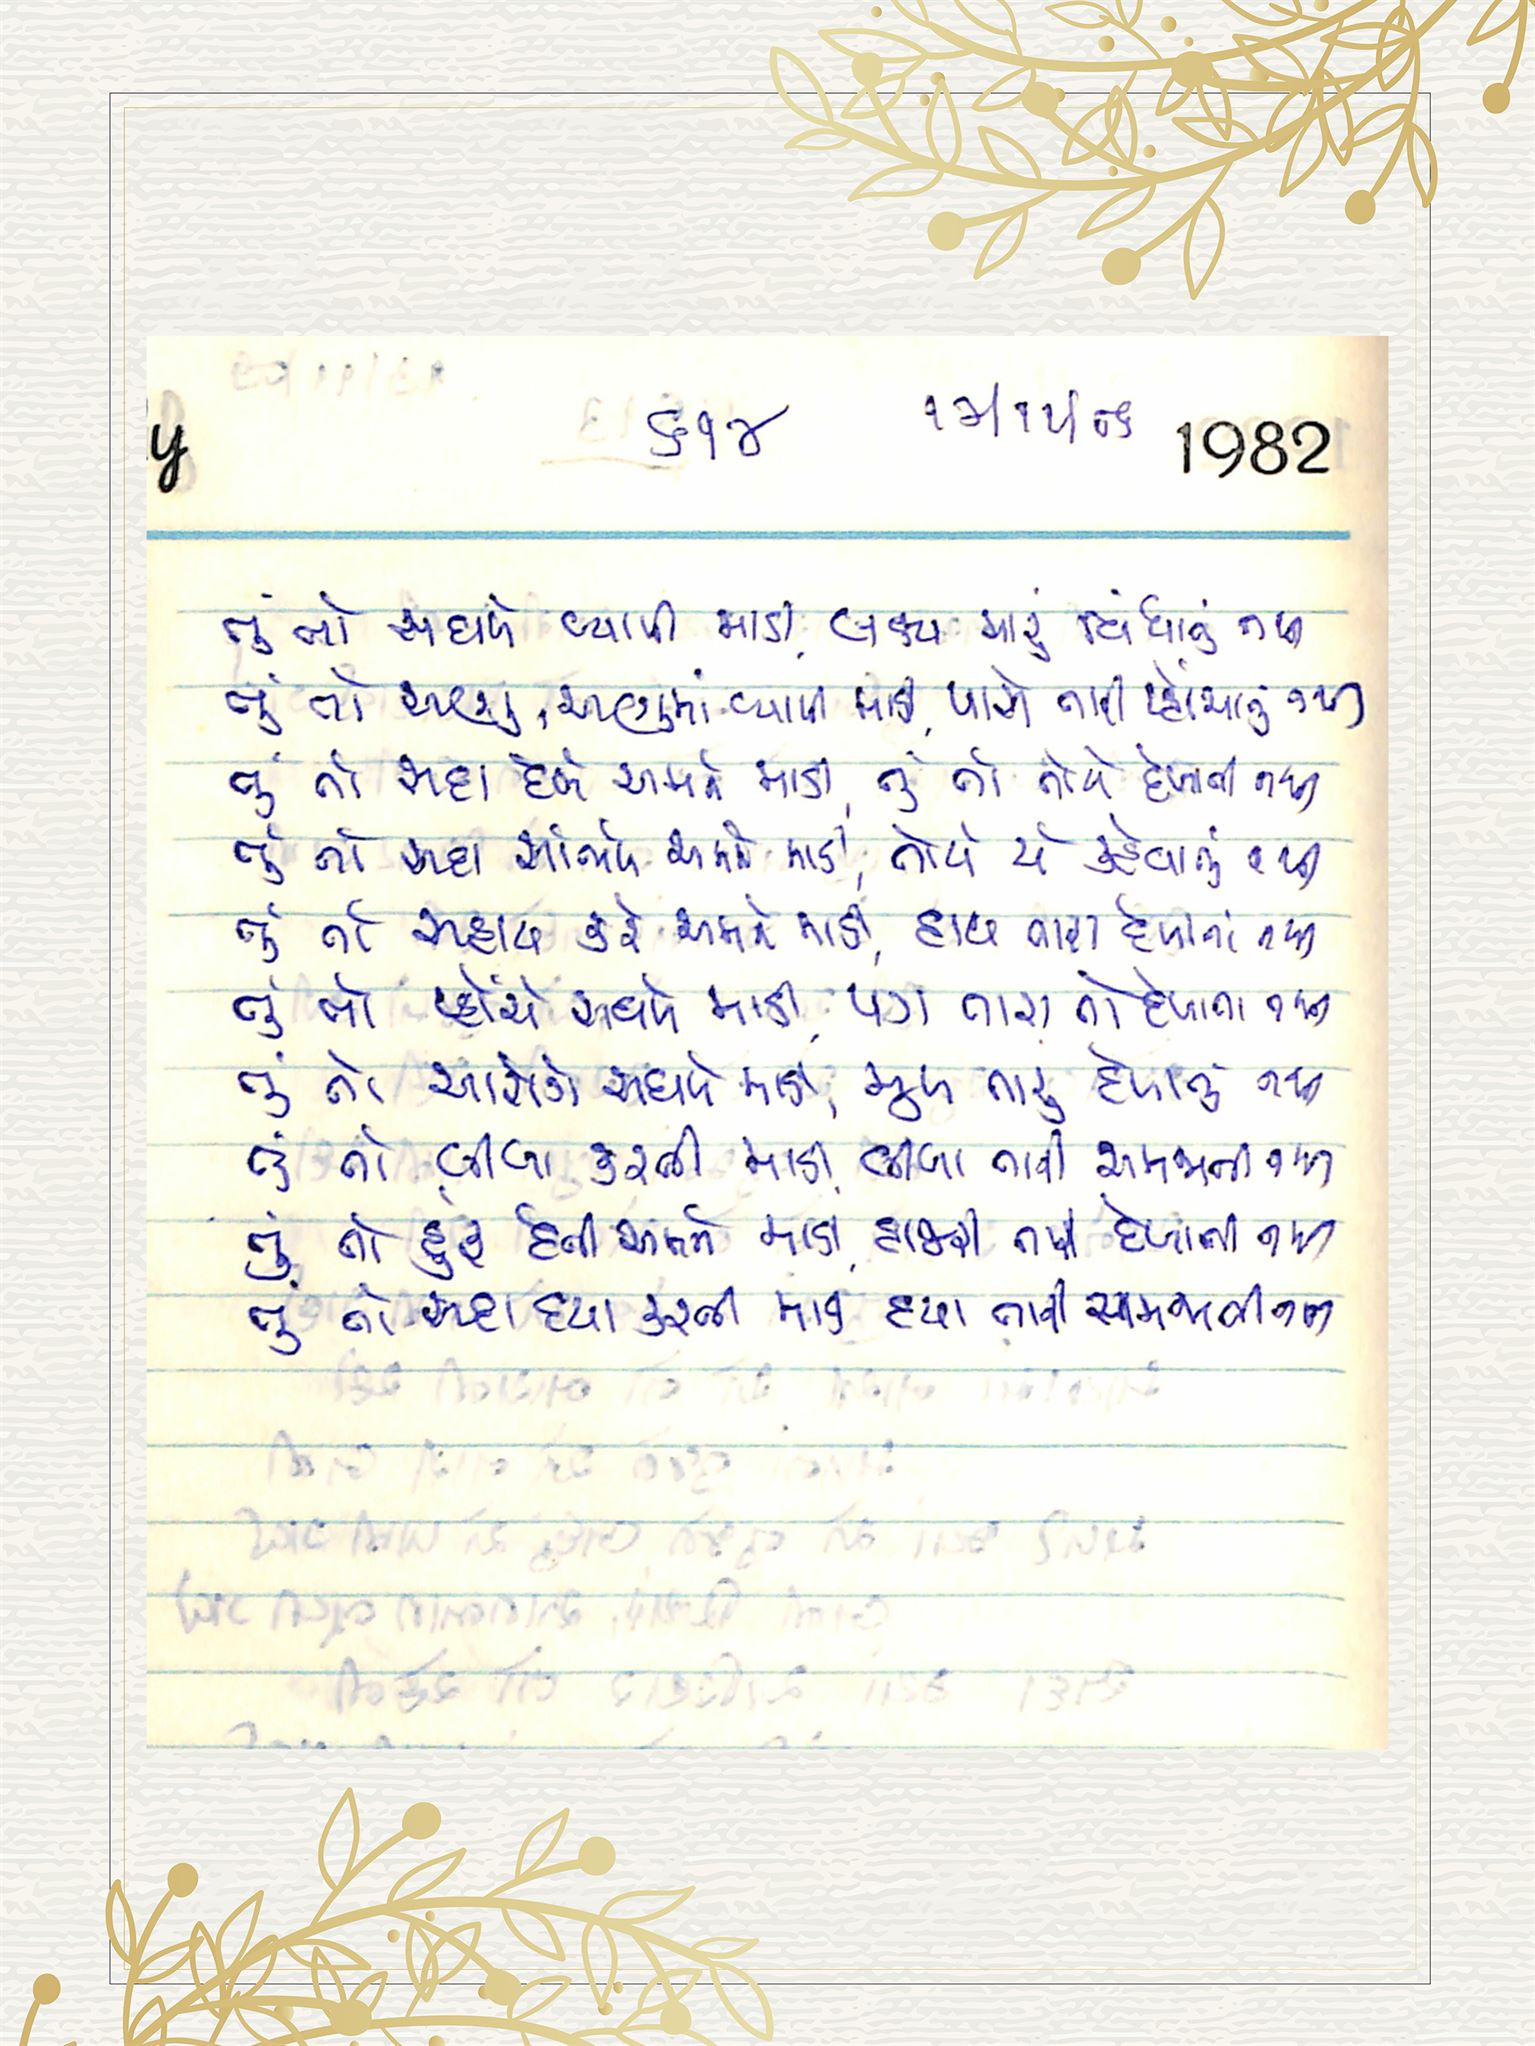 ૬૧૪ ૧૩/૧૧/૦૬
y 1982
તું તો સઘળે વ્યાપી માડી, લક્ષ્ય મારું બંધાતું નથી
તું તો અણુ, અણુમાં વ્યાપી માડી, પાસે તારી પ્હોંચાતું નથી
તું તો સદા દેખે અમને માડી, તું તો તોયે દેખાતી નથી
તું તો સદા સાંભળે અમને માડી, તોયે યે કહેવાતું નથી
તું તો સહાય કરે અમને માડી, હાથ તારા દેખાતાં નથી
તું તો પ્હોંચે સઘળે માડી, પગ તારા તો દેખાતા નથી
તું તો આરોગે સઘળે માડી, મુખ તારું દેખાતું નથી
તું તો લીલા કરતી માડી, લીલા તારી સમજાતી નથી
તું તો હુંફ દેતી અમને માડી, હાજરી તારી દેખાતી નથી
તું તો સદા દયા કરતી માડી દયા તારી સમજાતી નથી